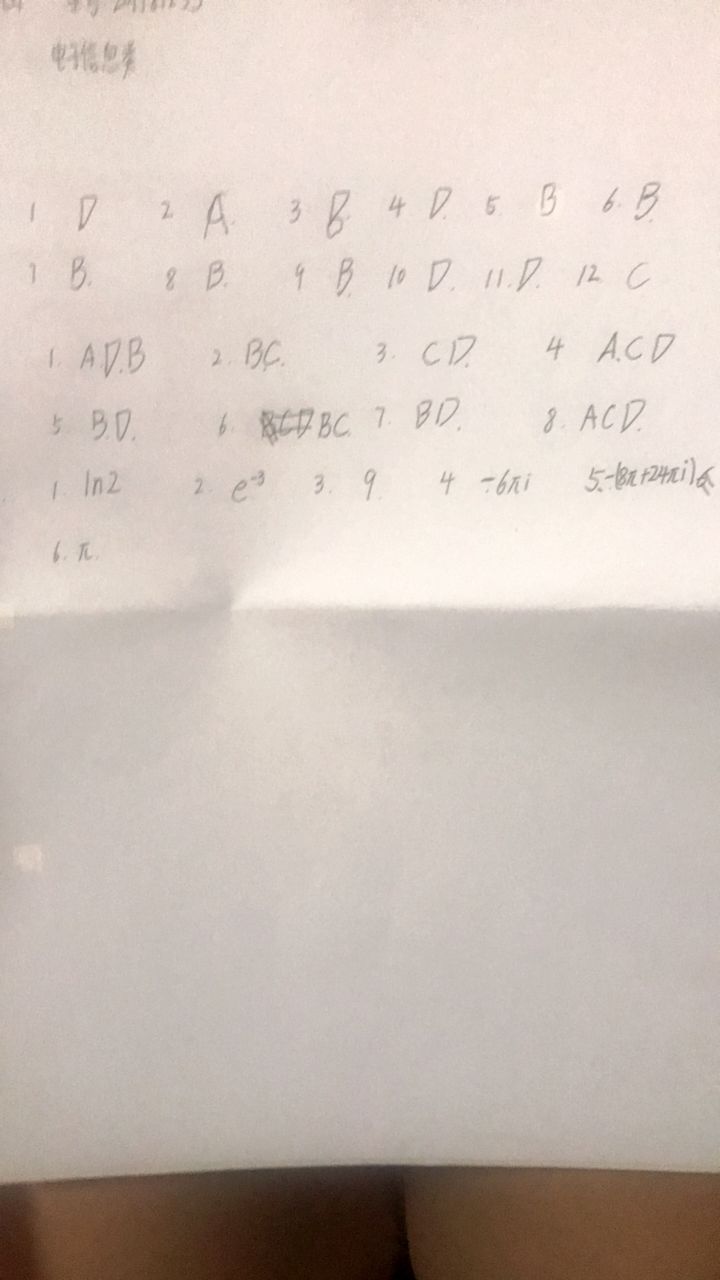 电子信息类
1 D 2 A. 3 B 4 D. 5 B 6. B.
7 B. 8 B. 9 B 10 D. 11. D. 12 C
1. A.D.B 2. BC. 3. CD. 4 A.CD
5 B.D. 6. BC. 7. BD. 8. ACD.
1. ln2 2. e⁻³ 3. 9. 4 -6πi 5. -(8π+24πi)
6. π.